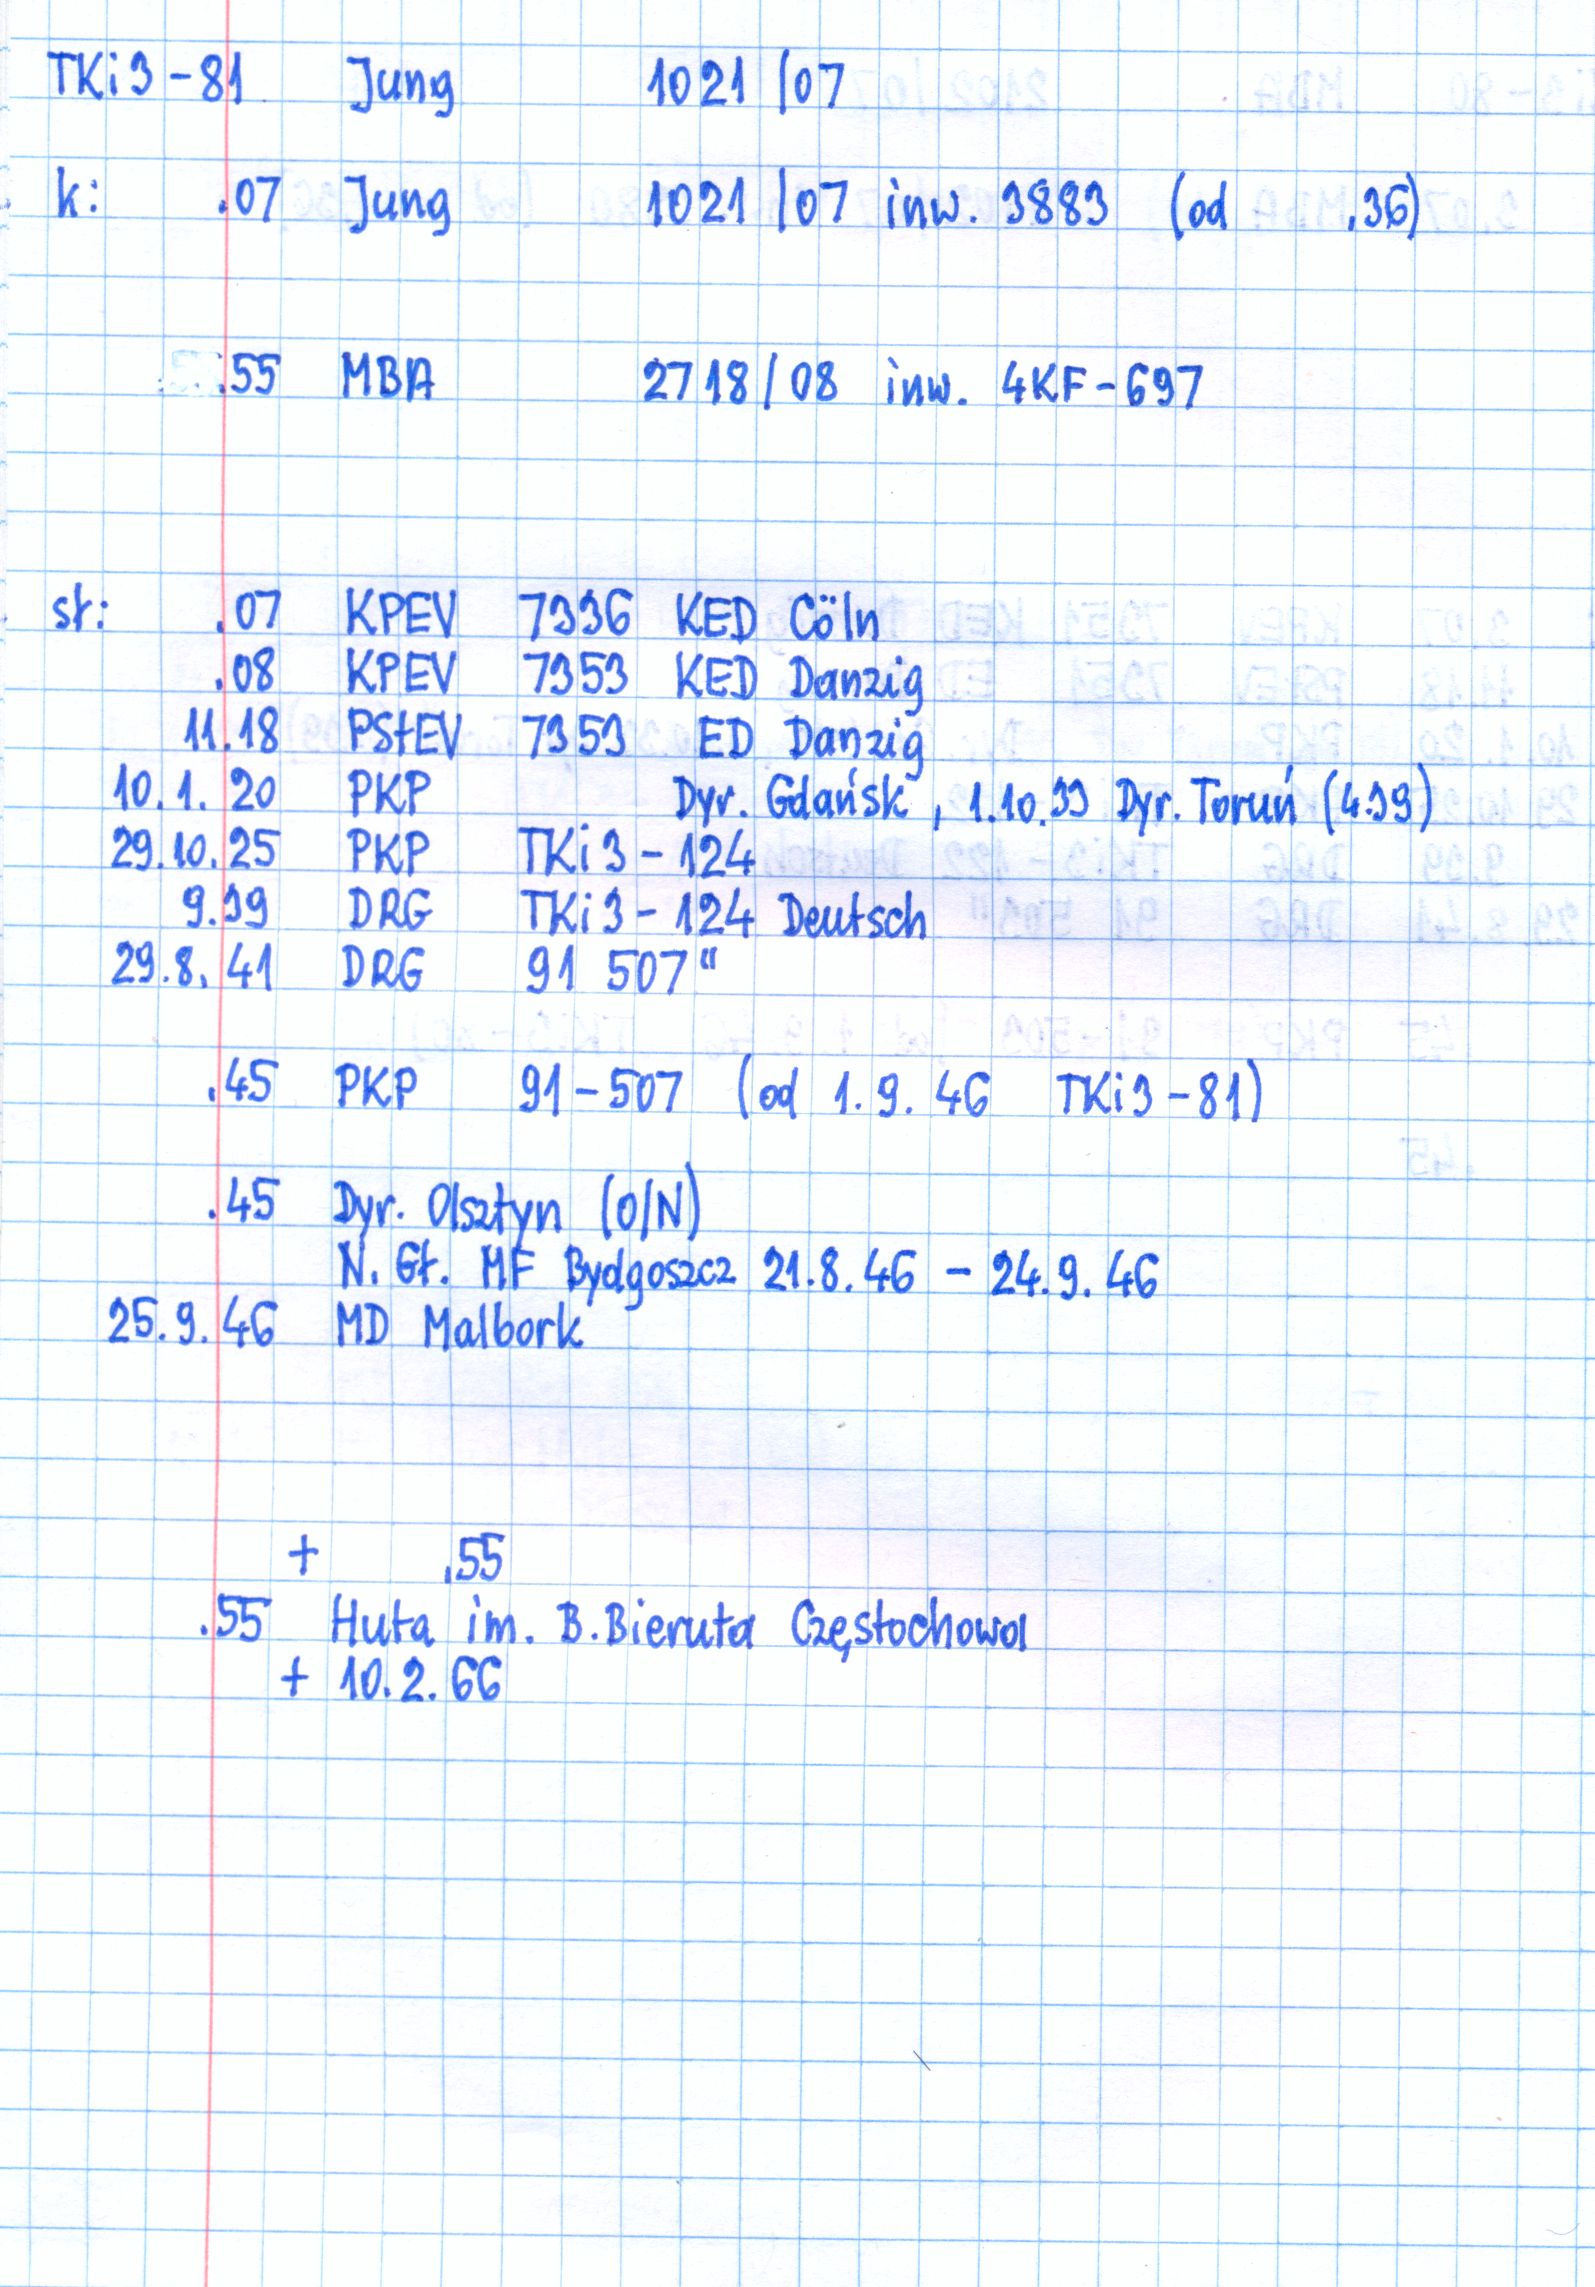 TKi3-81 Jung 1021/07
k: .07 Jung 1021/07 inw. 3883 (od .36)
.55 MBA 2718/08 inw. 4KF-697
st: .07 KPEV 7336 KED Cöln
.08 KPEV 7353 KED Danzig
11.18 PStEV 7353 ED Danzig
10.1.20 PKP Dyr. Gdańsk, 1.10.33 Dyr. Toruń (4.39)
29.10.25 PKP TKi3-124
9.39 DRG TKi3-124 Deutsch
29.8.41 DRG 91 507"
.45 PKP 91-507 (od 1.9.46 TKi3-81)
.45 Dyr. Olsztyn (O/N)
N. Gł. MF Bydgoszcz 21.8.46 - 24.9.46
25.9.46 MD Malbork
+ .55
.55 Huta im. B.Bieruta Częstochowa
+ 10.2.66